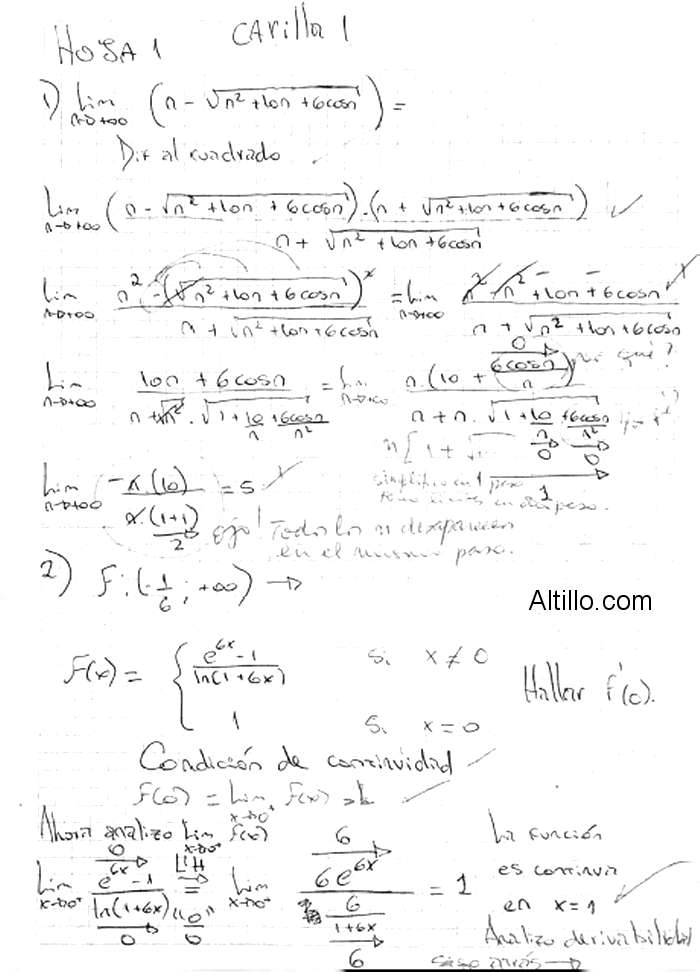 HOJA 1 CARILLA 1
1) Lim n→+∞ (n - √(n² + 10n + 6cosn)) =
Dif al cuadrado ✓
Lim n→+∞ (n - √(n² + 10n + 6cosn)).(n + √(n² + 10n + 6cosn)) / (n + √(n² + 10n + 6cosn)) ✓
Lim n→+∞ (n² - (√(n² + 10n + 6cosn))²) / (n + √(n² + 10n + 6cosn)) = Lim n→+∞ (n² - n² + 10n + 6cosn) / (n + √(n² + 10n + 6cosn))
Lim n→+∞ (10n + 6cosn) / (n + √n² . √(1 + 10/n + 6cosn/n²)) = Lim n→+∞ n.(10 + 6cosn/n → 0) / (n + n.√(1 + 10/n → 0 + 6cosn/n² → 0)) por qué?
n[1 + √ → 1
Lim n→+∞ -n.(10) / (n.(1+1) → 2) = 5
simplifico en 1 paso
ojo! Todos los n desaparecen
en el mismo paso.
2) F: (-1/6 ; +∞) →
Altillo.com
F(x) = { (e^6x - 1) / ln(1+6x) si x ≠ 0
1 si x = 0
Hallar f'(0).
Condición de continuidad ✓
F(0) = Lim x→0 F(x) = L ✓
Ahora analizo Lim x→0 f(x)
Lim x→0 (e^6x - 1 → 0) / (ln(1+6x) → 0) "0/0" L'H = Lim x→0 (6e^6x → 6) / (6/(1+6x) → 6) = 1
La función
es continua
en x = 1 ✓
Analizo derivabilidad
→